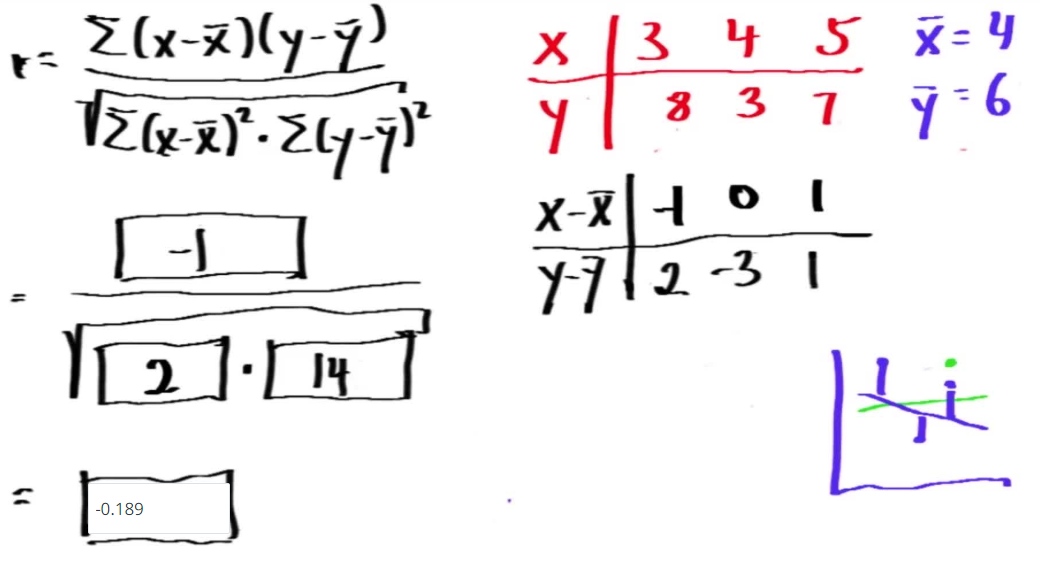 r = Σ(x-x̄)(y-ȳ) / √Σ(x-x̄)²·Σ(y-ȳ)²
= -1 / √2 · 14
= -0.189
x | 3 4 5
y | 8 3 7
x̄ = 4
ȳ = 6
x-x̄ | -1 0 1
y-ȳ | 2 -3 1